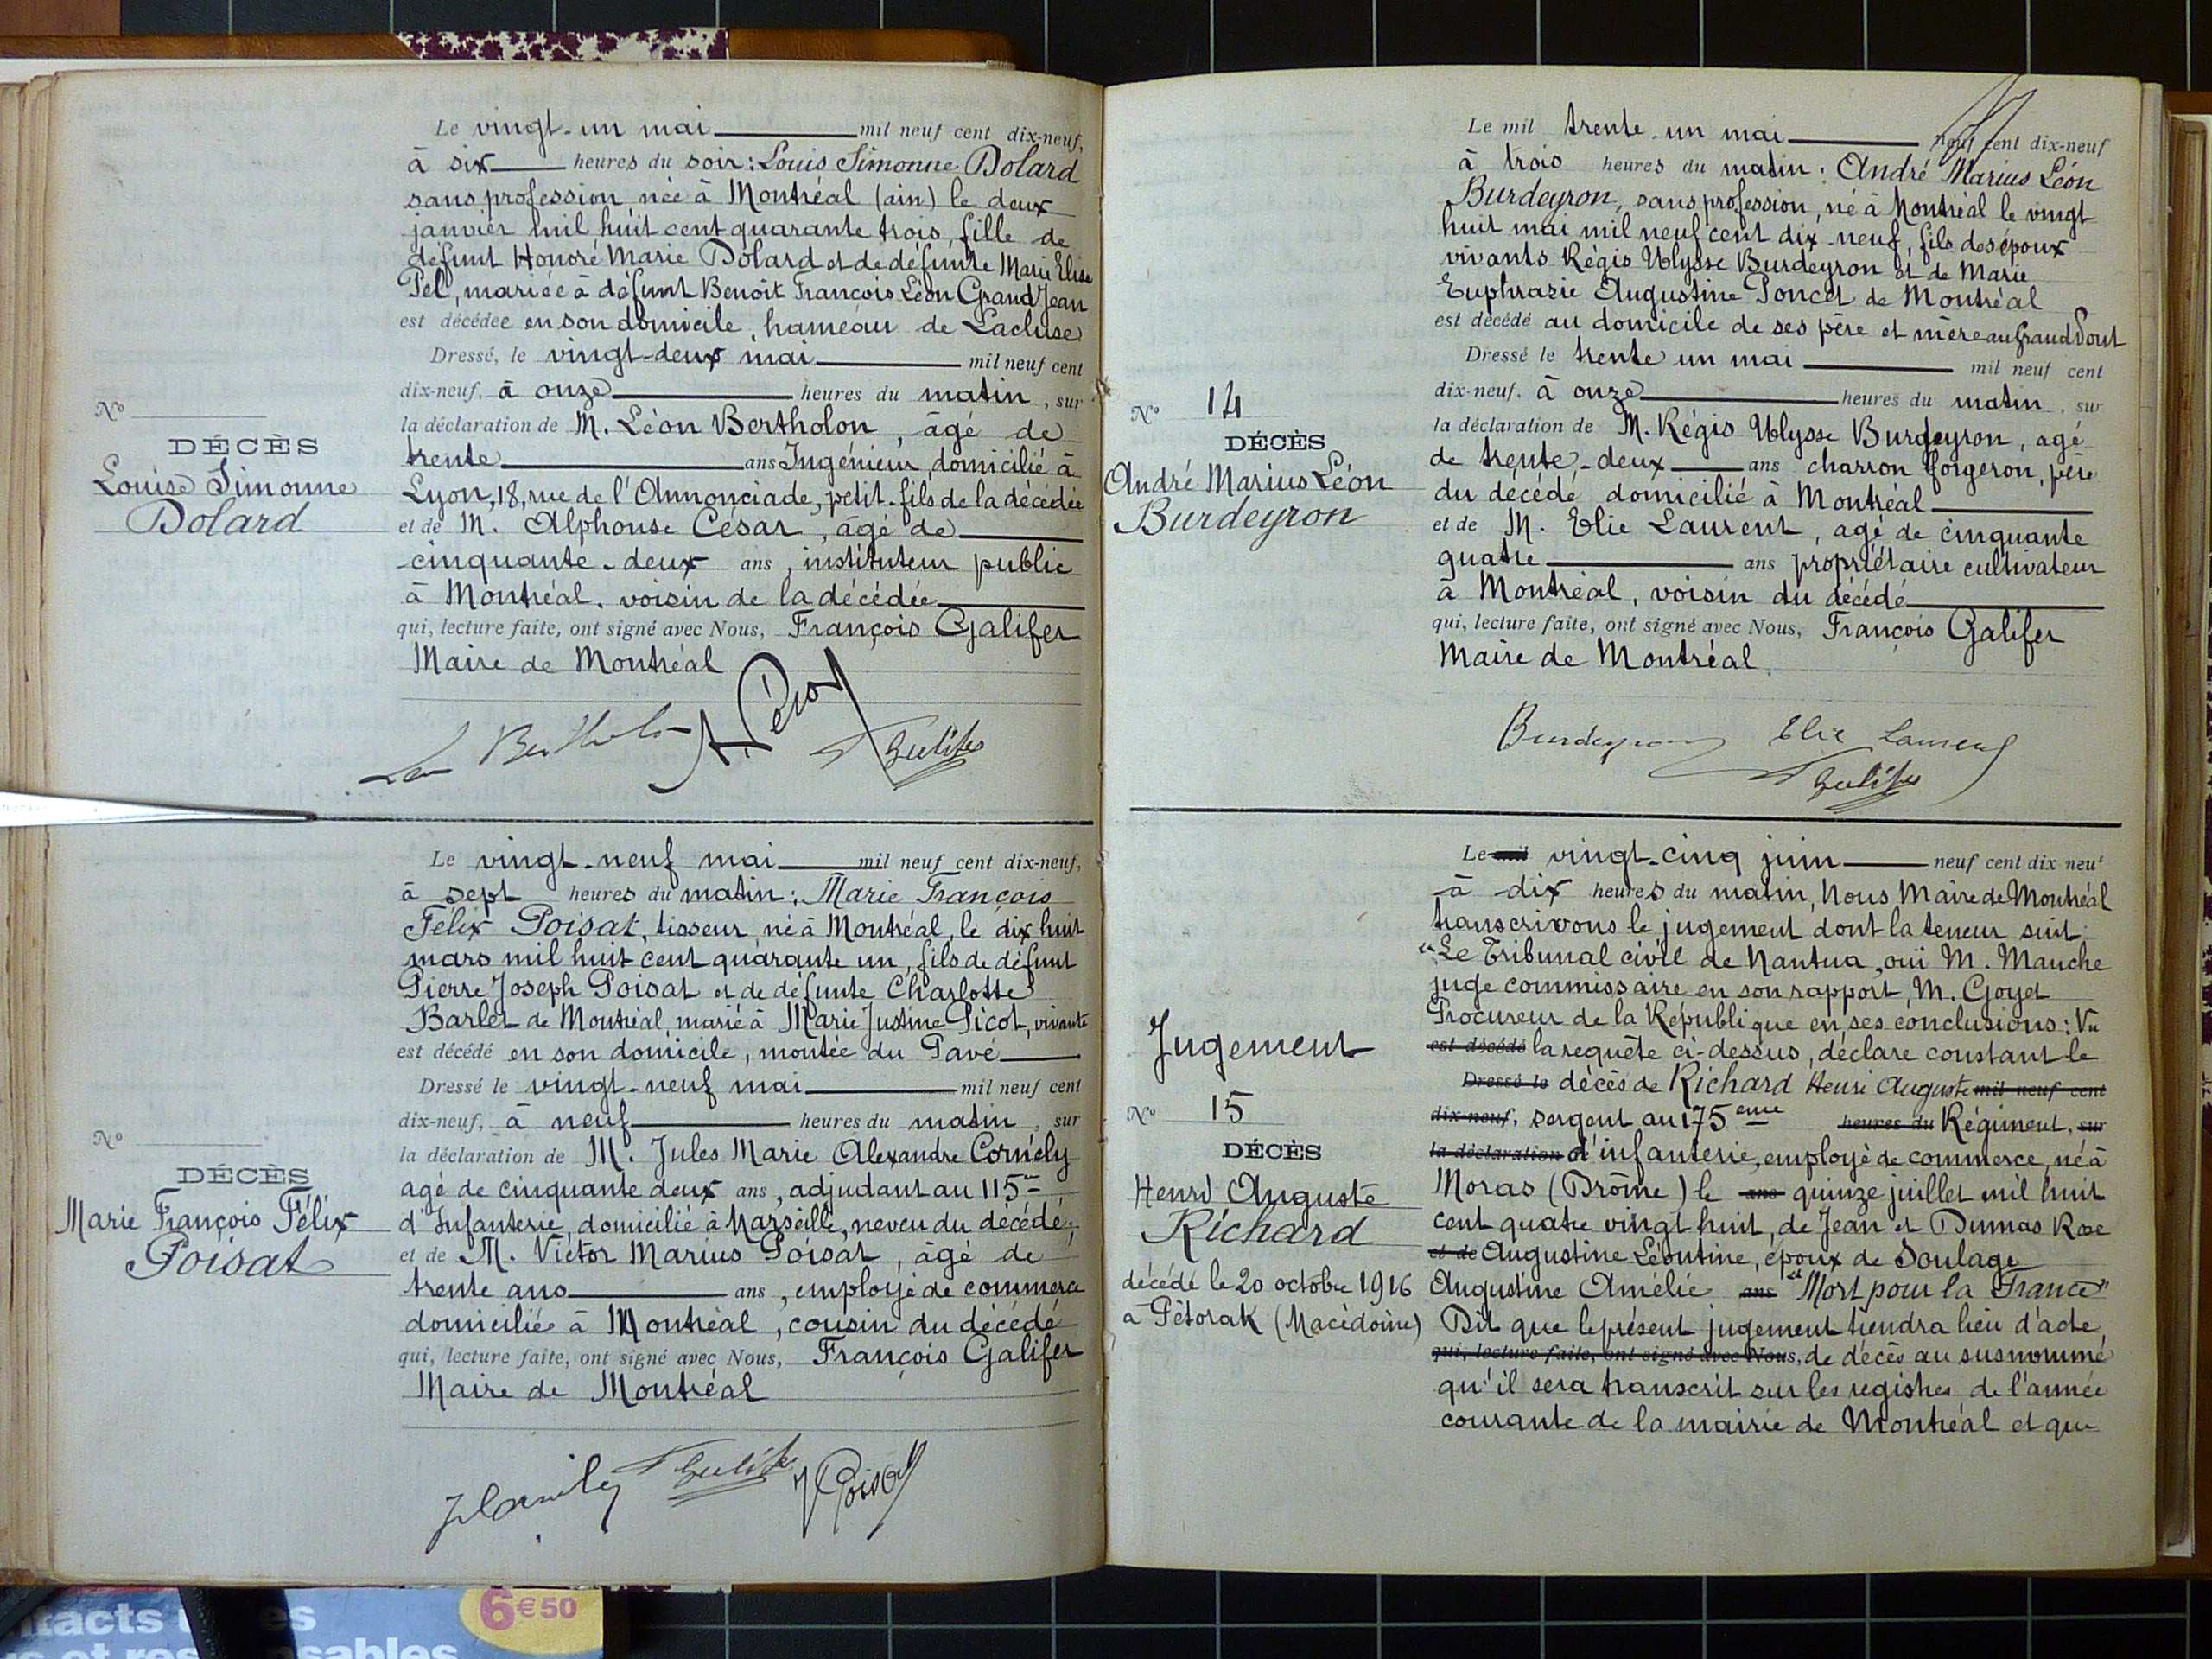 Le vingt-un mai mil neuf cent dix-neuf,
à six heures du soir : Louis Simonne Dolard
sans profession née à Montréal (ain) le deux
janvier mil huit cent quarante trois, fille de
défunt Honoré Marie Dolard et de défunte Marie Elise
Pel, mariée à défunt Benoît François Léon Grand Jean
est décédée en son domicile, hameau de Lacluse
Dressé, le vingt-deux mai mil neuf cent
dix-neuf, à onze heures du matin, sur
la déclaration de M. Léon Bertholon, âgé de
trente ans Ingénieur, domicilié à
Lyon, 18, rue de l'Annonciade, petit-fils de la décédée
et de M. Alphonse César, âgé de
cinquante-deux ans, instituteur public
à Montréal, voisin de la décédée
qui, lecture faite, ont signé avec Nous, François Galifer
Maire de Montréal
N°
DÉCÈS
Louise Simonne
Dolard
Le vingt-neuf mai mil neuf cent dix-neuf,
à sept heures du matin : Marie François
Félix Poisat, tisseur, né à Montréal, le dix huit
mars mil huit cent quarante un, fils de défunt
Pierre Joseph Poisat et de défunte Charlotte
Barlet de Montréal, marié à Marie Justine Picot, vivante
est décédé en son domicile, montée du Pavé
Dressé le vingt-neuf mai mil neuf cent
dix-neuf, à neuf heures du matin, sur
la déclaration de M. Jules Marie Alexandre Cornély
agé de cinquante deux ans, adjudant au 115e
d'Infanterie, domicilié à Marseille, neveu du décédé,
et de M. Victor Marius Poisat, âgé de
trente ans ans, employé de commerce
domicilié à Montréal, cousin du décédé
qui, lecture faite, ont signé avec Nous, François Galifer
Maire de Montréal
N°
DÉCÈS
Marie François Félix
Poisat
Le mil trente-un mai neuf cent dix-neuf
à trois heures du matin : André Marius Léon
Burdeyron, sans profession, né à Montréal le vingt
huit mai mil neuf cent dix-neuf, fils des époux
vivants Régis Ulysse Burdeyron et de Marie
Euphrasie Augustine Poncet de Montréal
est décédé au domicile de ses père et mère au Grand Pont
Dressé le trente un mai mil neuf cent
dix-neuf, à onze heures du matin, sur
la déclaration de M. Régis Ulysse Burdeyron, agé
de trente-deux ans charron forgeron, père
du décédé domicilié à Montréal
et de M. Elie Laurent, agé de cinquante
quatre ans propriétaire cultivateur
à Montréal, voisin du décédé
qui, lecture faite, ont signé avec Nous, François Galifer
Maire de Montréal
Burdeyron Elie Laurent
N° 14
DÉCÈS
André Marius Léon
Burdeyron
Le mil vingt-cinq juin neuf cent dix neuf
à dix heures du matin, Nous Maire de Montréal
transcrivons le jugement dont la teneur suit
"Le Tribunal civil de Nantua, ouï M. Mauche
juge commissaire en son rapport, M. Goyet
Procureur de la République en ses conclusions : Vu
est décédé la requête ci-dessus, déclare constant le
Dressé le décès de Richard Henri Auguste mil neuf cent
dix-neuf, sergent au 175eme heures du Régiment, sur
la déclaration d'infanterie, employé de commerce, né à
Moras (Drôme) le ans quinze juillet mil huit
cent quatre vingt huit, de Jean et Dumas Rose
et de Augustine Léontine, époux de Soulage
Augustine Amélie ans "Mort pour la France"
Dit que le présent jugement tiendra lieu d'acte,
qui, lecture faite, ont signé avec Nous, de décès au susnommé
qu'il sera transcrit sur les registres de l'année
courante de la mairie de Montréal et que
Jugement
N° 15
DÉCÈS
Henri Auguste
Richard
décédé le 20 octobre 1916
à Pétorak (Macédoine)
6€50